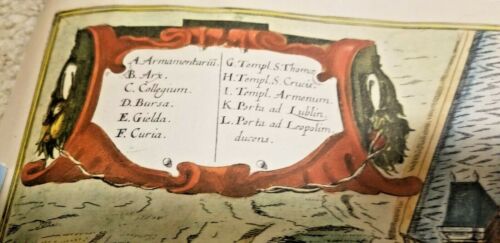 A. Armamentariū.
B. Arx.
C. Collegium.
D. Bursa.
E. Gielda.
F. Curia.
G. Templ. S. Thomæ
H. Templ. S. Crucis.
I. Templ. Armenum.
K. Porta ad Lublin.
L. Porta ad Leopolim
ducens.